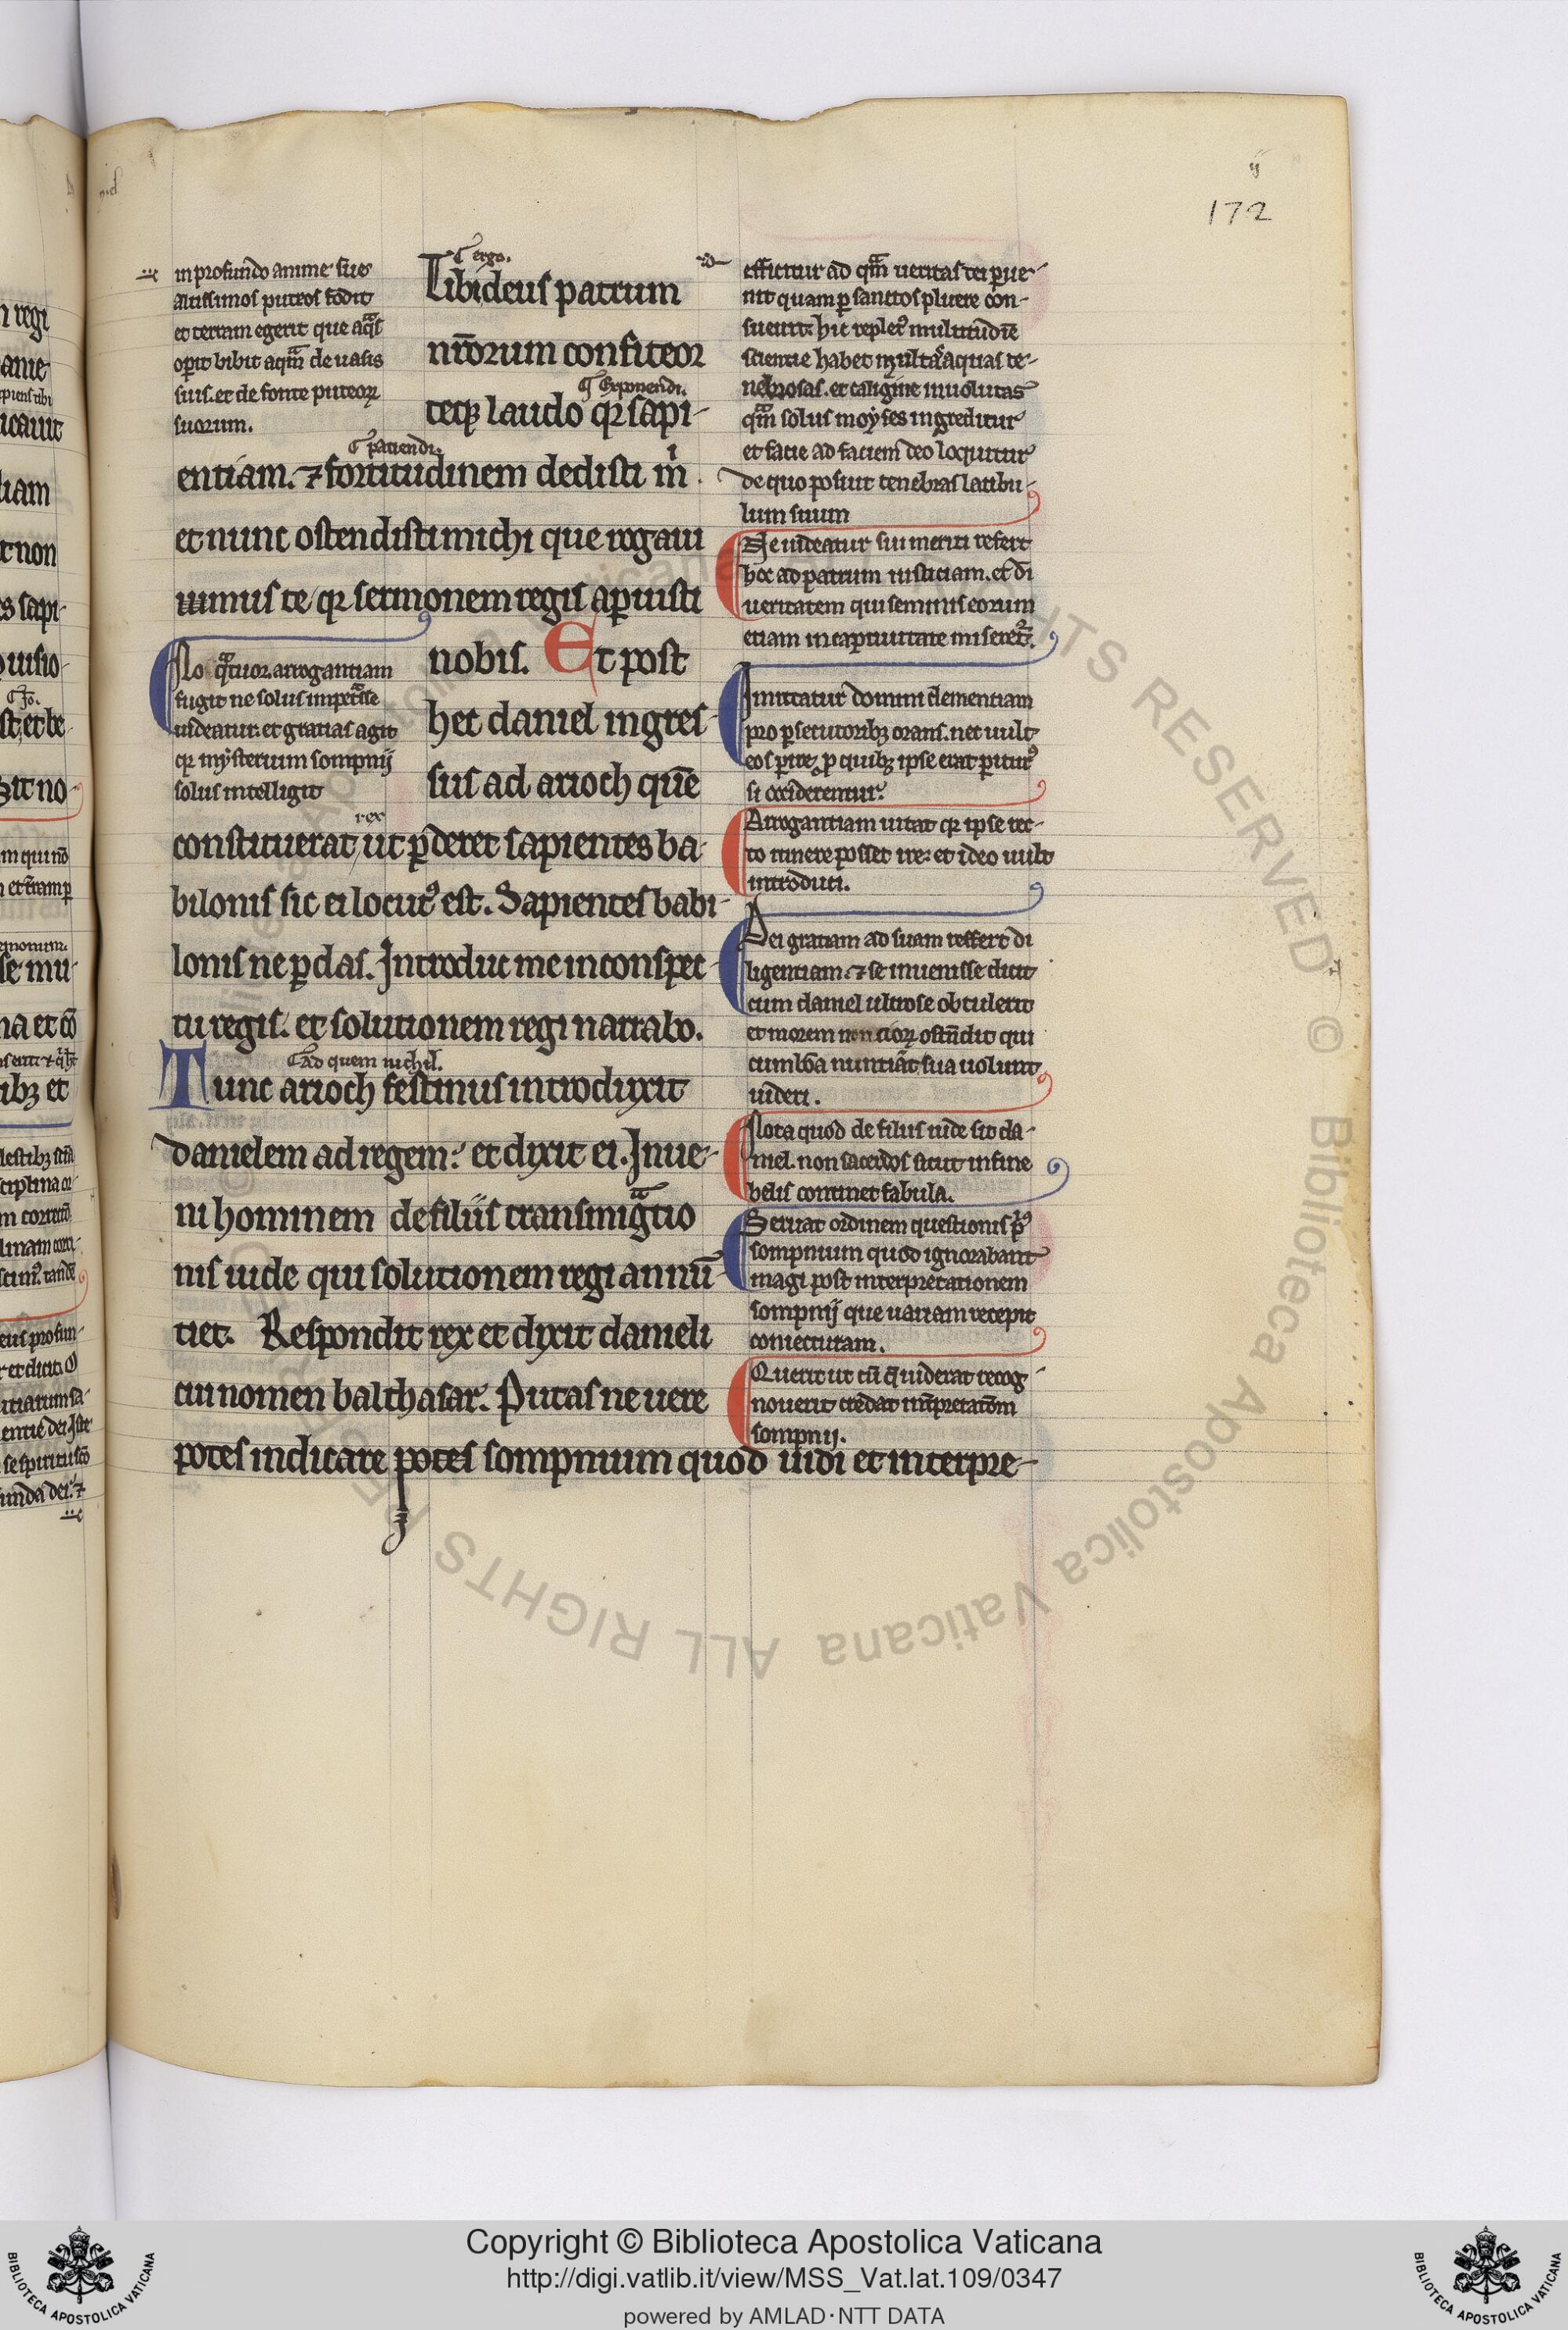 ij
172
in profundo anime sue
altissimos puteos fodit
et terram egerit que aq̃s
oꝑit bibit aqm̃ de uasis
suis. et de fonte puteoꝝ
suorum.
ergo.
Tibi deus patrum
nr̃orum confiteor
Exponendi.
teqꝫ laudo qꝛ sapi-
patiendi.
entiam. ⁊ fortitudinem dedisti m̊
et nunc ostendisti michi que rogaui
uimus te qꝛ sermonem regis aꝑuisti
nobis. Et post
hec daniel ingres-
sus ad arioch quē
rex
constituerat ut ꝑderet sapientes ba-
bilonis sic ei locutꝰ est. Sapientes babi-
lonis ne ꝑdas. Introduc me in conspec-
tu regis. et solutionem regi narrabo.
Ad quem nichil.
Tunc arioch festinus introduxit
danielem ad regem. et dixit ei. Inue-
ni hominem de filiis transmigᷓtio
nis iude qui solutionem regi annū-
tiet. Respondit rex et dixit danieli
cui nomen balthasar. Putas ne uere
potes indicare potes sompnium quod uidi et interpre-
No qᷓtuor. arrogantiam
fugit ne solus impetᷓsse
uideatur. et gratias agit
qꝛ mysterium sompnij
solus intelligit
efficitur ad qm̃ ueritas dei ꝑue-
nit quam ꝑ sanctos pluere con-
sueuit. hic repletꝰ multitudīe
scientie habet multas aquas te-
nebrosas. et caligine inuolutas
qm̃ solus moyses ingreditur
et facie ad faciem deo loquitur
de quo posuit tenebras latibu-
lum suum
Ne uideatur sui meriti refert
hec ad patrum iusticiam. et dī
ueritatem qui seminis eorum
etiam in captiuitate miseret᷑.
Imitatur domini clementiam
pro ꝑsecutoribꝫ orans. nec uult
eos ꝑire ꝓ quibꝫ ipse erat ꝑiturꝰ
si occiderentur.
Arrogantiam uitat qꝛ ipse rec-
to itinere posset ire. et ideo uult
introduci.
Dei gratiam ad suam reffert di
ligentiam. ⁊ se inuenisse dicit
cum daniel ultro se obtulerit
et morem nonciorꝝ ostēdit qui
cum bōa nuntiāt sua uolunt
uideri.
Nota quod de filiis iude sit da-
niel. non sacerdos sicut in fine
belis continet fabula.
Seruat ordinem questionis pͥꝰ
sompnium quod ignorabant
magi post interpretationem
sompnij que uariam recepit
coniecturam.
Querit ut cū q̄ uiderat recog-
nouerit credat int̄pretatōm
sompnij.
Copyright © Biblioteca Apostolica Vaticana
http://digi.vatlib.it/view/MSS_Vat.lat.109/0347
powered by AMLAD·NTT DATA